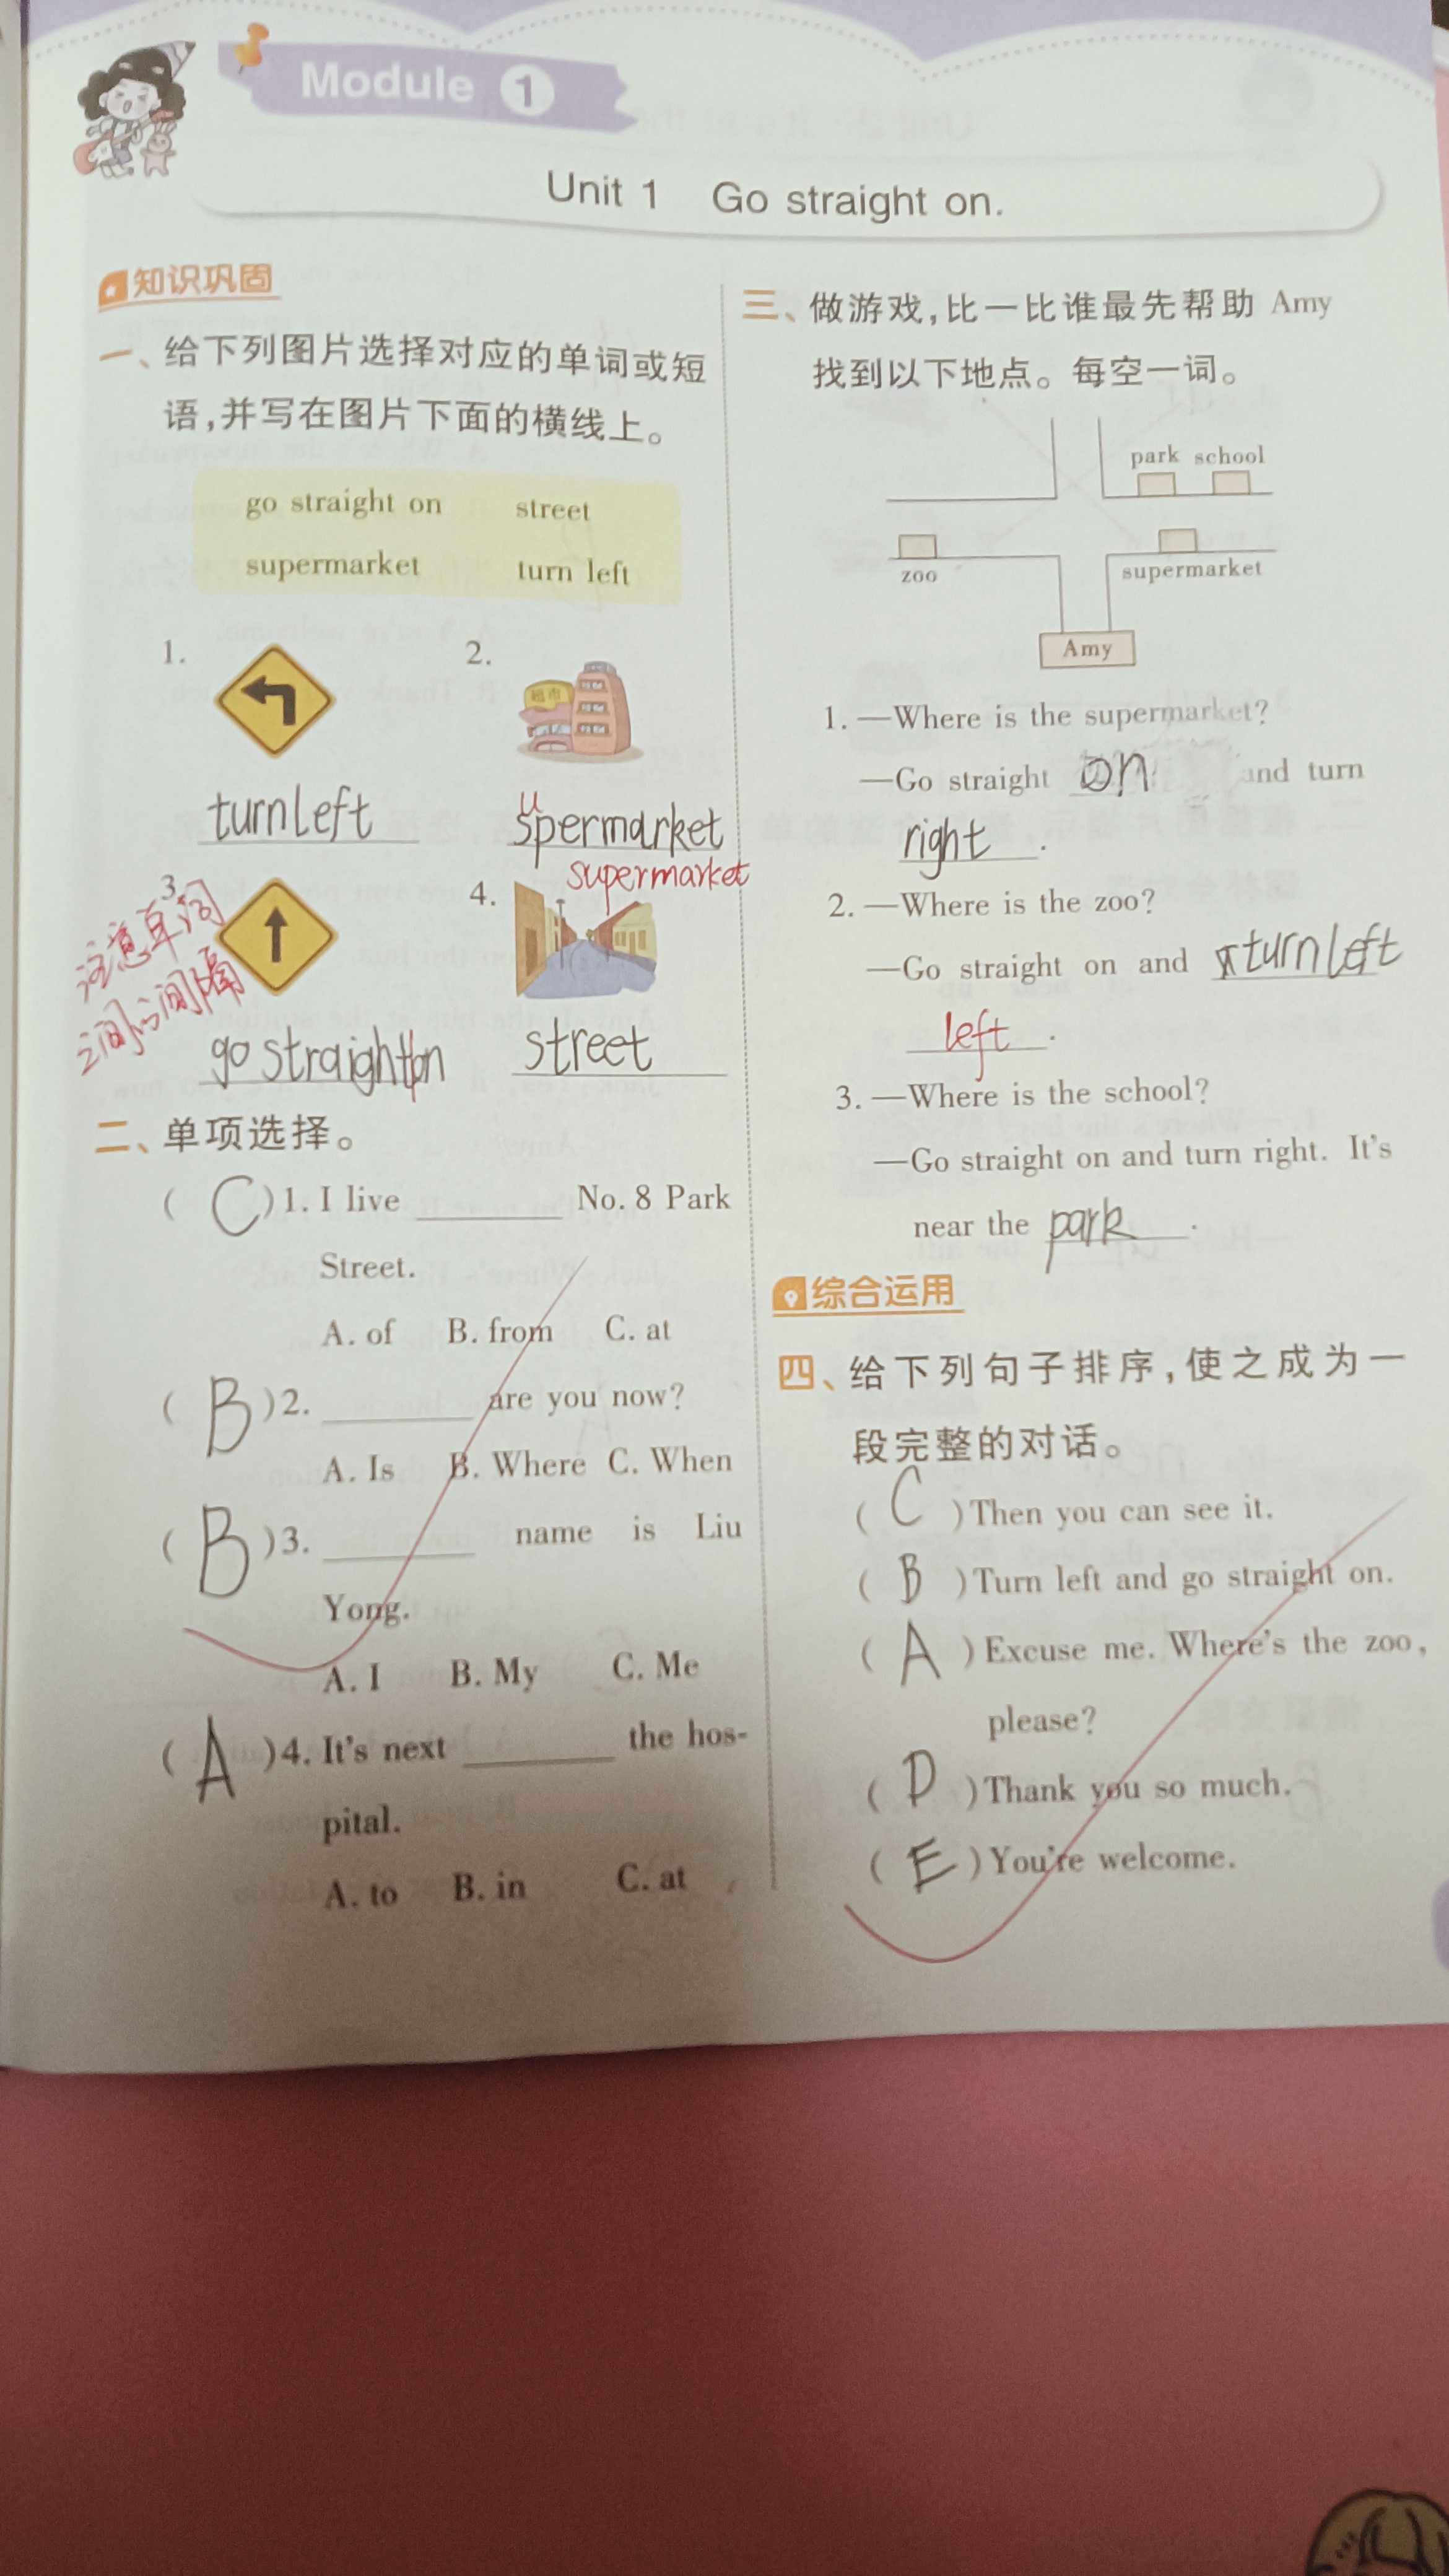 Module 1
Unit 1 Go straight on.
知识巩固
一、给下列图片选择对应的单词或短
语,并写在图片下面的横线上。
go straight on street
supermarket turn left
1. 2.
超市
turn left spermarket
u
supermarket
3. 4.
注意单词
之间的间隔
go straight on street
二、单项选择。
( C )1. I live ______ No. 8 Park
Street.
A. of B. from C. at
( B )2. ______ are you now?
A. Is B. Where C. When
( B )3. ______ name is Liu
Yong.
A. I B. My C. Me
( A )4. It's next ______ the hos-
pital.
A. to B. in C. at
三、做游戏,比一比谁最先帮助 Amy
找到以下地点。每空一词。
park school
zoo supermarket
Amy
1. —Where is the supermarket?
—Go straight on and turn
right.
2. —Where is the zoo?
—Go straight on and turn left
left.
3. —Where is the school?
—Go straight on and turn right. It's
near the park.
综合运用
四、给下列句子排序,使之成为一
段完整的对话。
( C )Then you can see it.
( B )Turn left and go straight on.
( A )Excuse me. Where's the zoo,
please?
( D )Thank you so much.
( E )You're welcome.